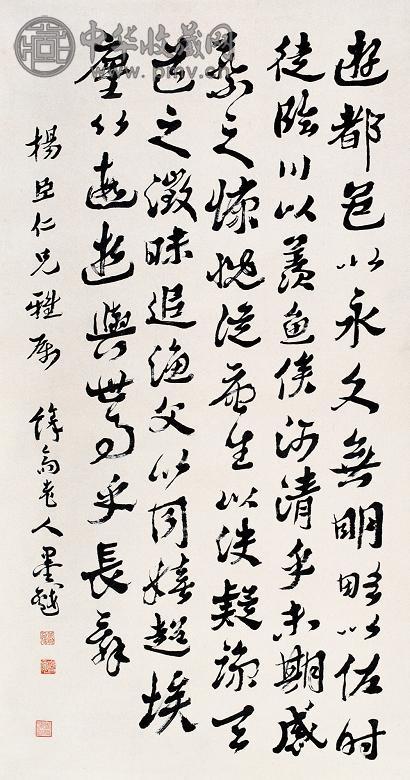 遊都邑以永久無明略以佐時
徒臨川以羨魚俟河清乎未期感
蔡之慷慨從唐生以決疑諒天
道之微昧追漁父以同嬉超埃
塵以遐逝與世事乎長辭
楊臣仁兄雅屬 老人
中华收藏网